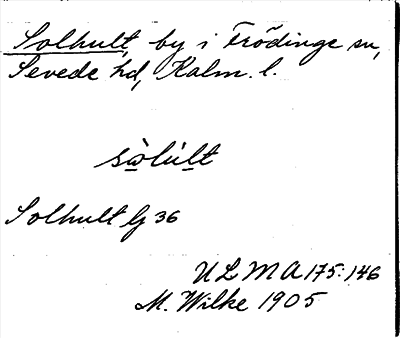 Solhult, by i Frödinge sn,
Sevede hd, Kalm. l.
sὼlúlt
Solhult Gj 36
ULMA 175:146
M. Wilke 1905